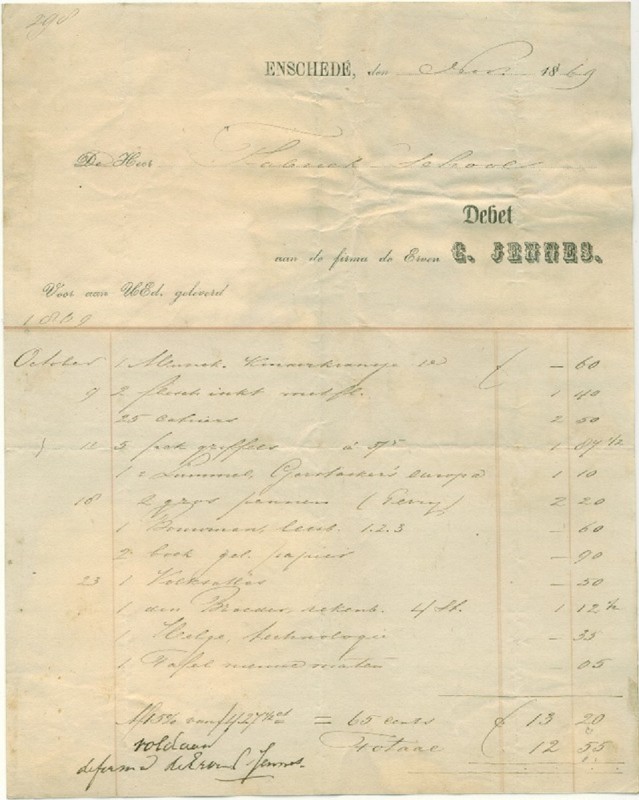 298
ENSCHEDÉ, den Nov. 1869
De Heer Fabriek Schools
Debet
aan de firma de Erven G. JENNES.
Voor aan UEd. geleverd
1869
October 1 Kinderkransje – 60
9 2 flesch inkt met fl. 1 40
25 cahiers 2 50
12 5 pak griffels à 37⁵ 1 87 ½
1 Lummel, Gerstacker's Europa 1 10
16 2 gros pennen (Perry) 2 20
1 Bouwman, leesb. 1.2.3 – 60
2 boek gel. papier – 90
23 1 Volksatlas – 50
1 den Broeder, rekenb. 4 St. 1 12 ½
1 technologie – 35
1 Tafel nieuwe maten – 05
15% van = 65 cents f 13 20
Voldaan Totaal f 12 55
de firma de Erven Jennes.